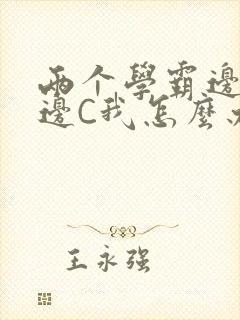 两个學霸邊
邊C我怎麼
王永强